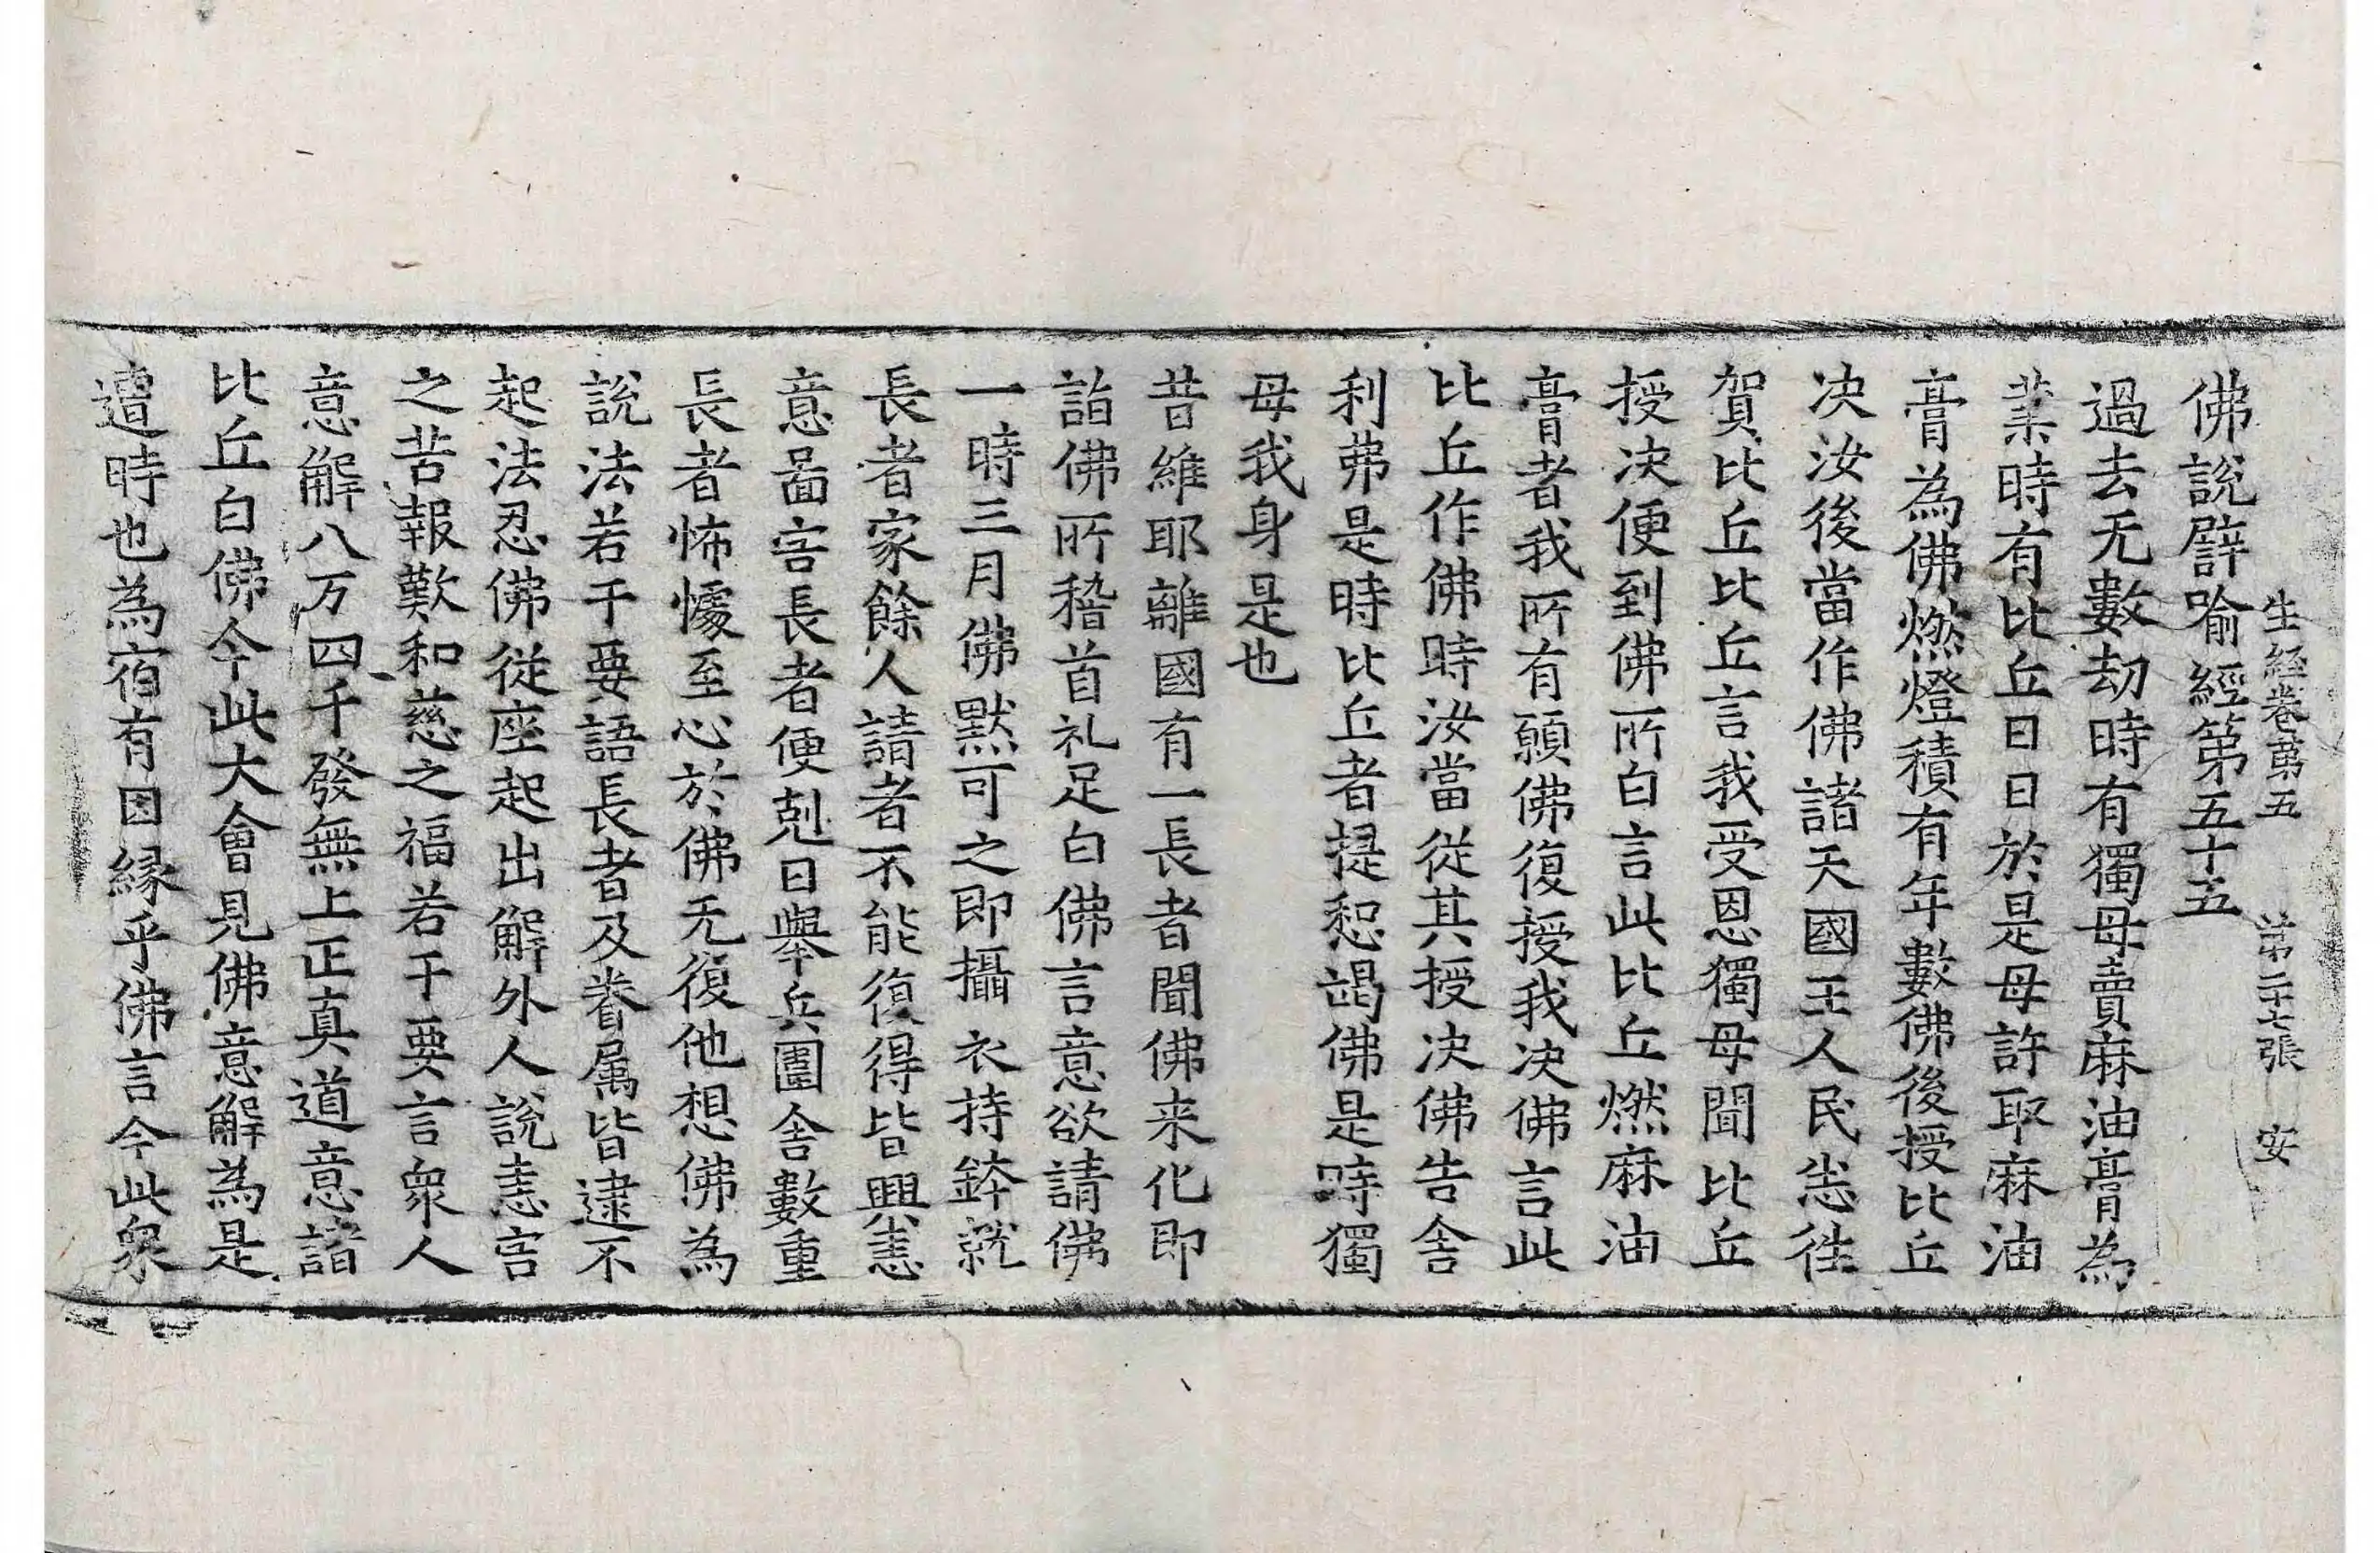 生經卷苐五　苐二十七張　安
佛說譬喻經第五十五
過去无數劫時有獨母賣麻油膏為
業時有比丘日日於是母許取麻油
膏為佛燃燈積有年數佛後授比丘
决汝後當作佛諸天國王人民悉徃
賀比丘比丘言我受恩獨母聞比丘
授决便到佛所白言此比丘燃麻油
膏者我所有願佛復授我决佛言此
比丘作佛時汝當從其授决佛告舍
利弗是時比丘者提惒竭佛是時獨
母我身是也
昔維耶離國有一長者聞佛来化即
詣佛所稽首礼足白佛言意欲請佛
一時三月佛默可之即攝衣持鉢就
長者家餘人請者不能復得皆興恚
意啚害長者便剋日舉兵圍舍數重
長者怖懅至心於佛无復他想佛為
說法若干要語長者及眷属皆逮不
起法忍佛從座起出解外人說恚害
之苦報歎和慈之福若干要言衆人
意解八万四千發無上正真道意諸
比丘白佛今此大會見佛意解為是
遭時也為宿有因緣乎佛言今此衆